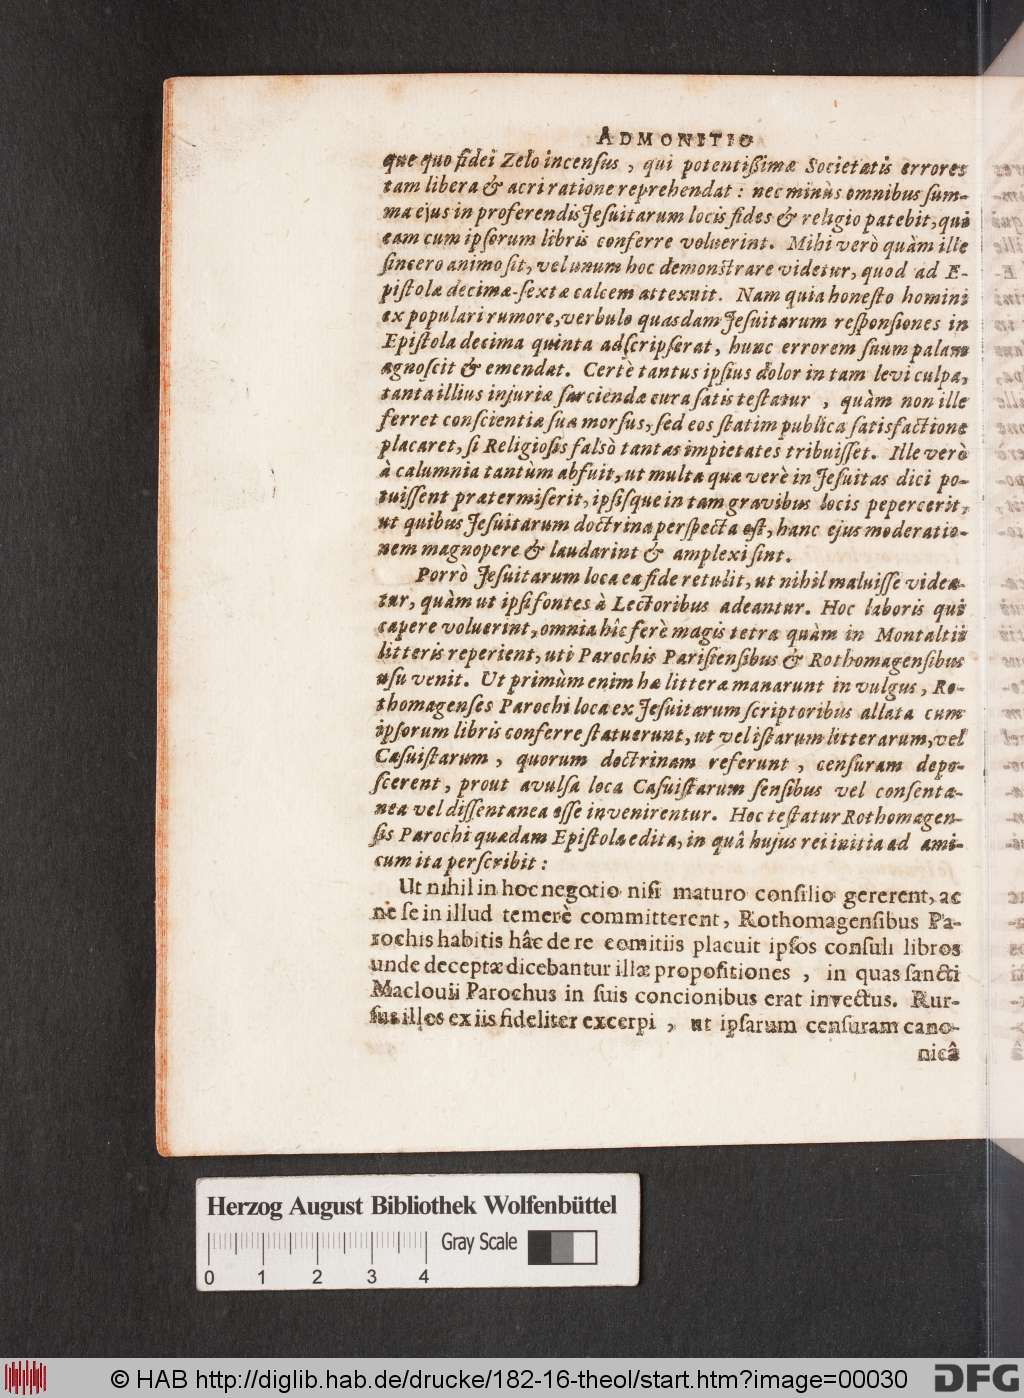 ADMONITIO
que quo fidei Zelo incensus, qui potentissimæ Societatis errores
tam libera & acri ratione reprehendat: nec minùs omnibus sum-
ma ejus in proferendis Jesuitarum locis fides & religio patebit, qui
eam cum ipsorum libris conferre voluerint. Mihi verò quàm ille
sincero animo sit, vel unum hoc demonstrare videtur, quod ad E-
pistolæ decimæ-sextæ calcem attexuit. Nam quia honesto homini
ex populari rumore, verbulo quasdam Jesuitarum responsiones in
Epistola decima quinta adscripserat, hunc errorem suum palam
agnoscit & emendat. Certè tantus ipsius dolor in tam levi culpa,
tanta illius injuriæ sarciendæ cura satis testatur, quàm non ille
ferret conscientiæ suæ morsus, sed eos statim publica satisfactione
placaret, si Religiosis falsò tantas impietates tribuisset. Ille verò
à calumnia tantùm abfuit, ut multa quæ verè in Jesuitas dici po-
tuissent prætermiserit, ipsisque in tam gravibus locis pepercerit,
ut quibus Jesuitarum doctrina perspecta est, hanc ejus moderatio-
nem magnopere & laudarint & amplexi sint.
Porrò Jesuitarum loca ea fide retulit, ut nihil maluisse videa-
tur, quàm ut ipsi fontes à Lectoribus adeantur. Hoc laboris qui
capere voluerint, omnia hîc ferè magis tetra quàm in Montaltii
litteris reperient, uti Parochis Parisiensibus & Rothomagensibus
usu venit. Ut primùm enim hæ litteræ manarunt in vulgus, Ro-
thomagenses Parochi loca ex Jesuitarum scriptoribus allata cum
ipsorum libris conferre statuerunt, ut vel istarum litterarum, vel
Casuistarum, quorum doctrinam referunt, censuram depo-
scerent, prout avulsa loca Casuistarum sensibus vel consenta-
nea vel dissentanea esse invenirentur. Hoc testatur Rothomagen-
sis Parochi quædam Epistola edita, in quâ hujus rei initia ad ami-
cum ita perscribit:
Ut nihil in hoc negotio nisi maturo consilio gererent, ac
ne se in illud temerè committerent, Rothomagensibus Pa-
rochis habitis hâc de re comitiis placuit ipsos consuli libros
unde deceptæ dicebantur illæ propositiones, in quas sancti
Maclouii Parochus in suis concionibus erat invectus. Rur-
sus illos ex iis fideliter excerpi, ut ipsarum censuram cano-
nicâ
Herzog August Bibliothek Wolfenbüttel
Gray Scale
0 1 2 3 4
© HAB http://diglib.hab.de/drucke/182-16-theol/start.htm?image=00030
DFG